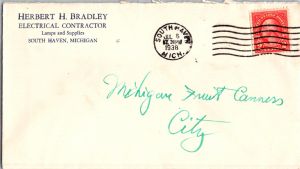 HERBERT H. BRADLEY
ELECTRICAL CONTRACTOR
Lamps and Supplies
SOUTH HAVEN, MICHIGAN
SOUTH HAVEN
JUL 6
1938
MICH.
Michigan Fruit Canners
City